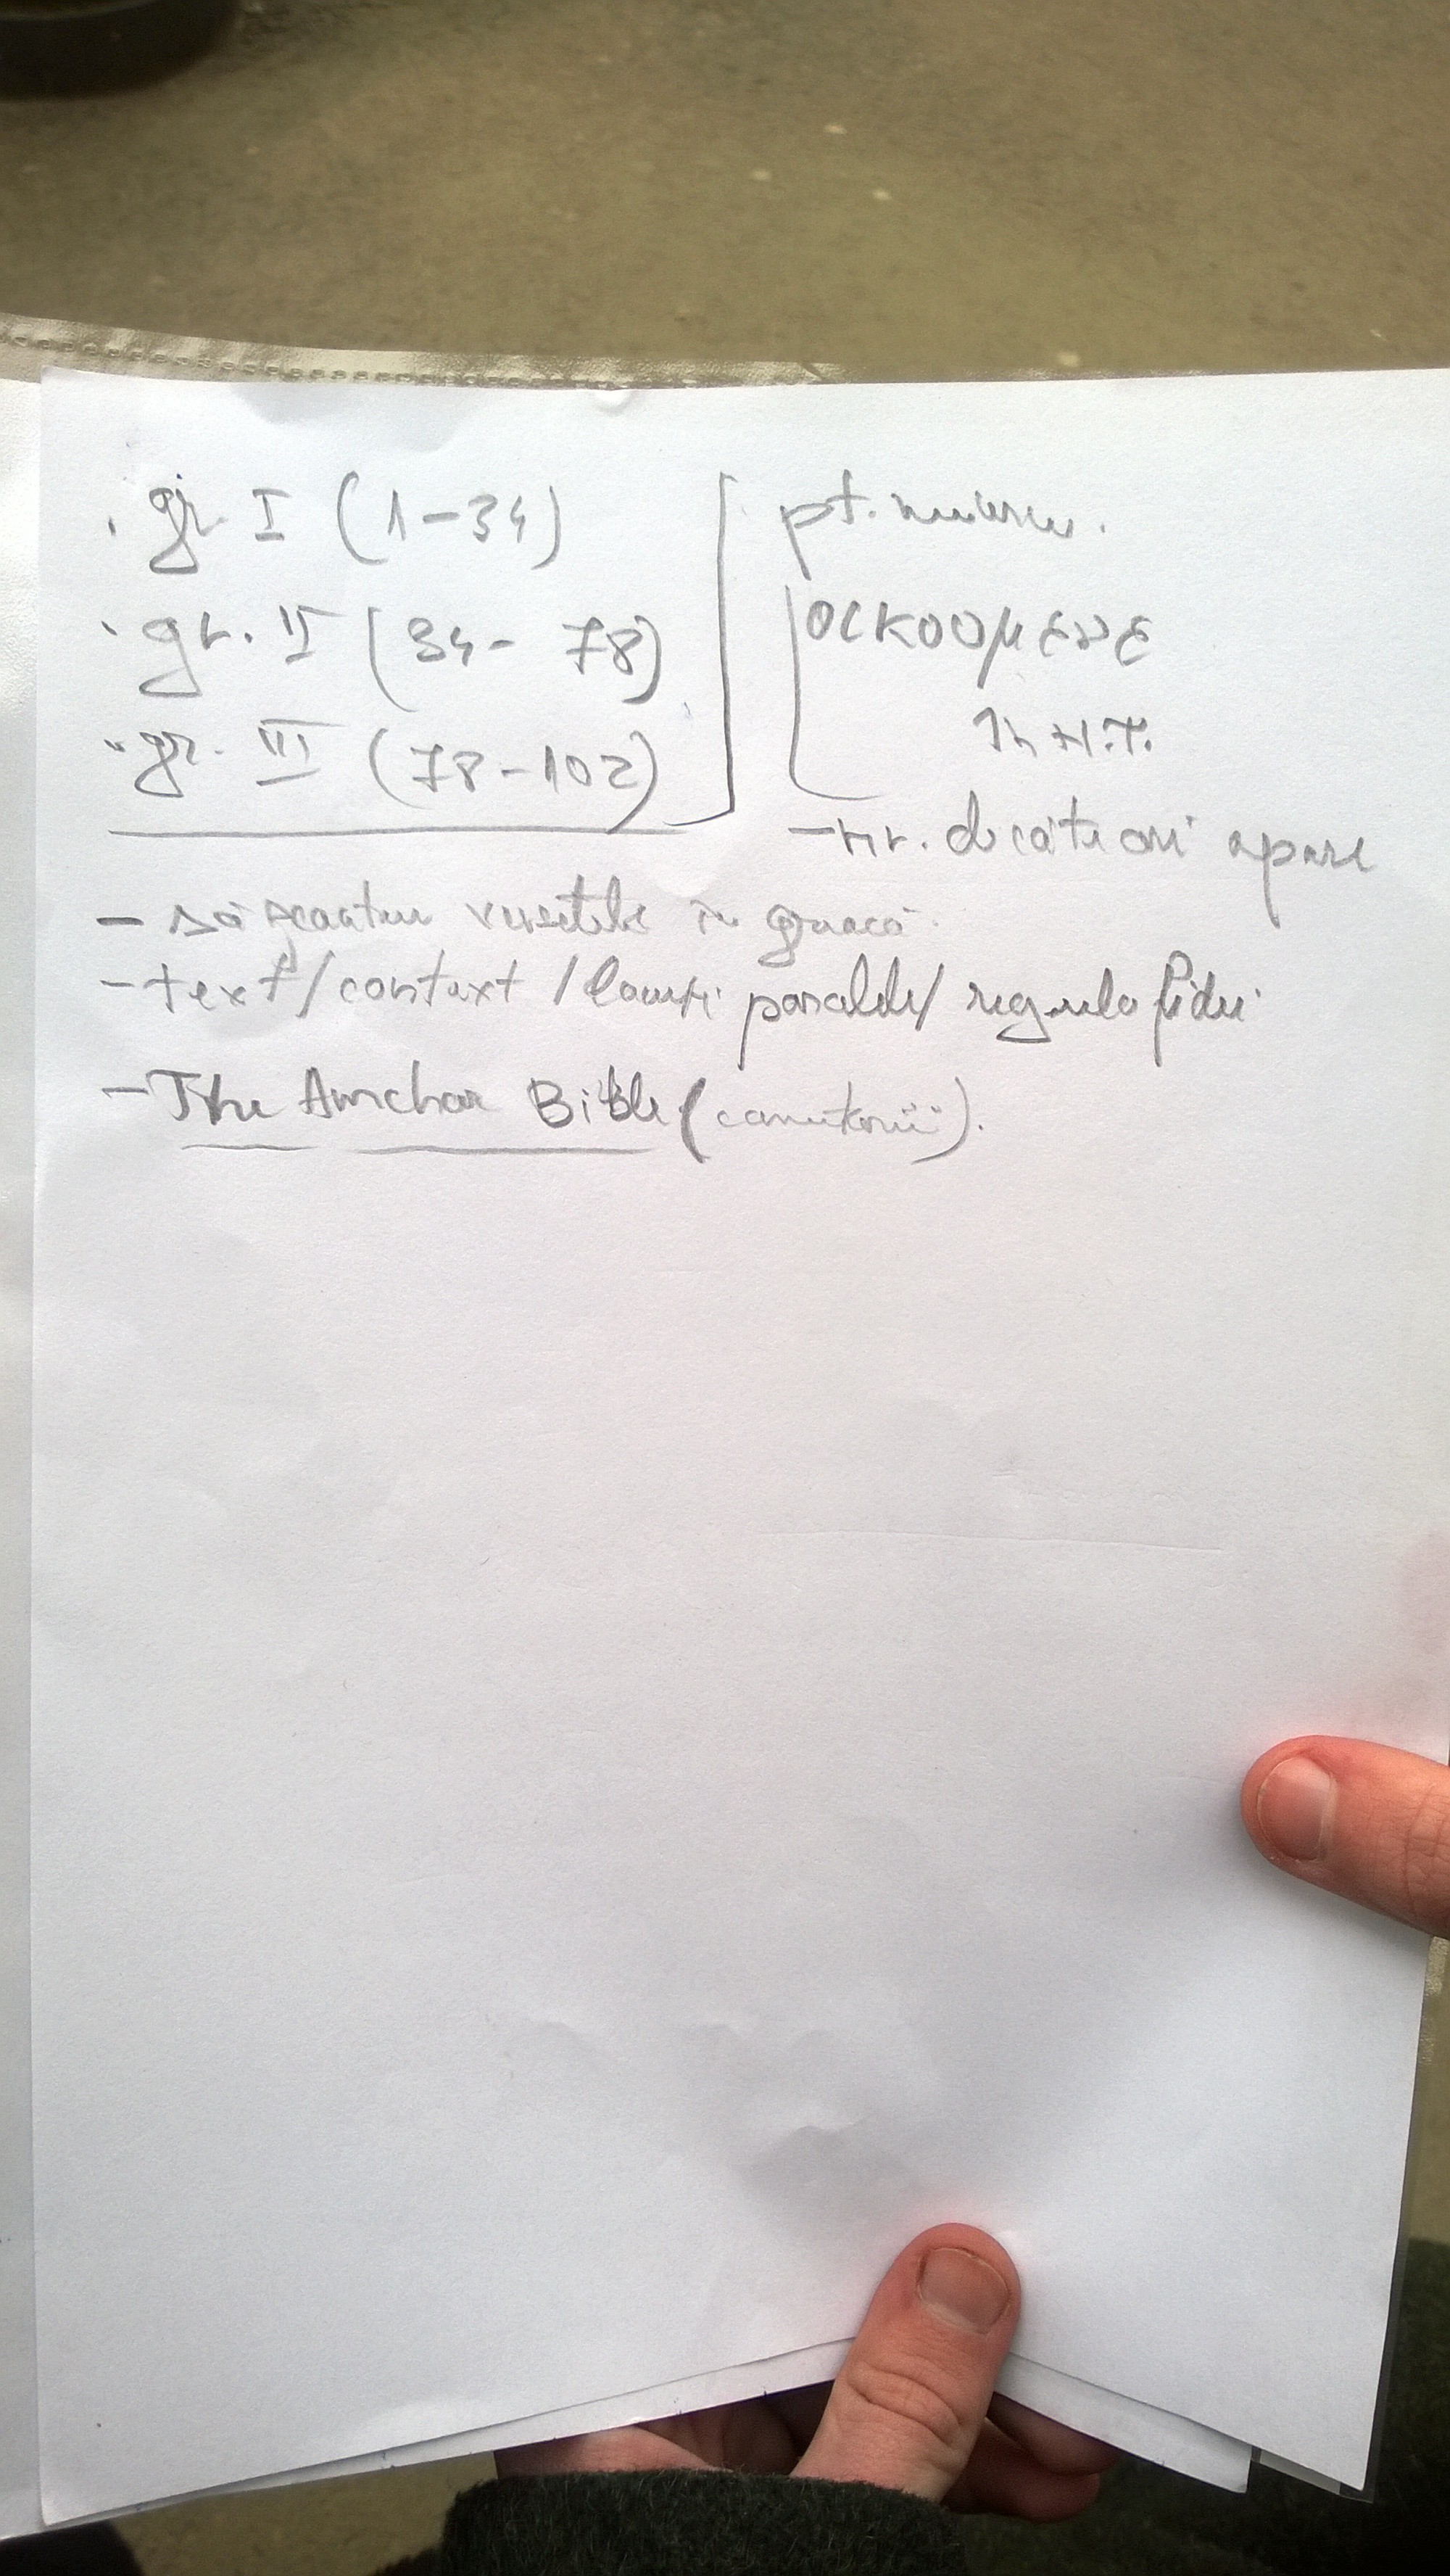 gr. I (1-34)
gr. II (34- 78)
gr. III (78-102)
pt. miercu.
οικοομενε
în N.T.
-nr. de câte ori apare
- să scoatem versetele în greacă.
- text/context / locuri paralele/ regula fidei
- The Anchor Bible (comentarii).